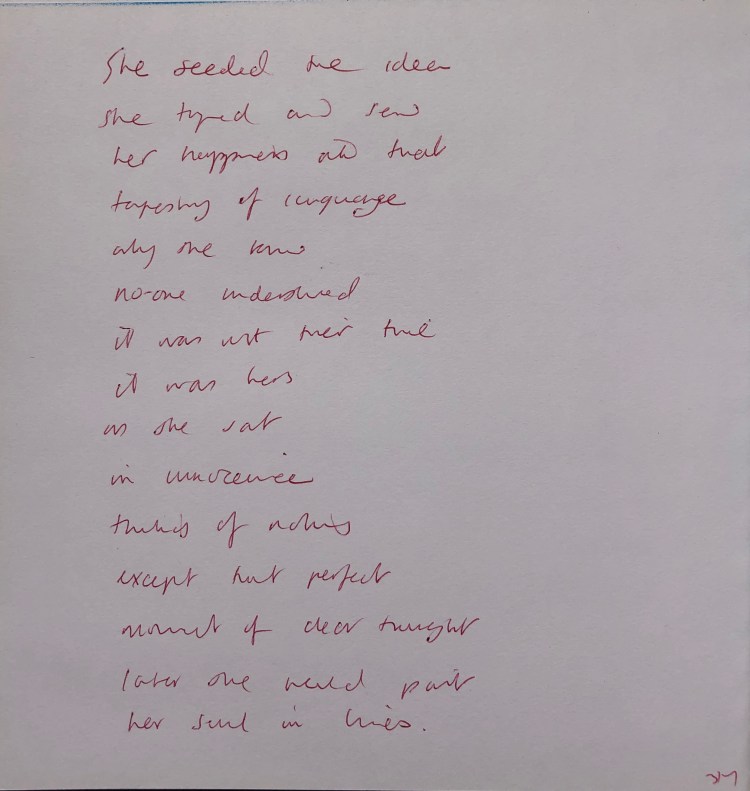 She seeded the idea
she typed and send
her happiness and that
tapestry of language
why she knew
no-one understood
it was not their time
it was hers
as she sat
in innocence
thinking of nothing
except that perfect
moment of clear thought
later she would paint
her soul in lines.